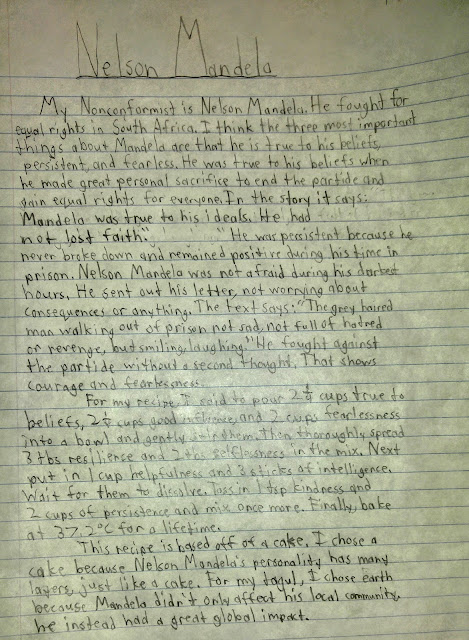 Nelson Mandela
My Nonconformist is Nelson Mandela. He fought for
equal rights in South Africa. I think the three most important
things about Mandela are that he is true to his beliefs,
persistent, and fearless. He was true to his beliefs when
he made great personal sacrifice to end the partide and
gain equal rights for everyone. In the story it says:
Mandela was true to his ideals. He had
not lost faith." " He was persistent because he
never broke down and remained positive during his time in
prison. Nelson Mandela was not afraid during his darkest
hours. He sent out his letter, not worrying about
consequences or anything. The text says: "The grey haired
man walking out of prison not sad, not full of hatred
or revenge, but smiling, laughing." He fought against
the partide without a second thought. That shows
courage and fearlessness.
For my recipe, I said to pour 2 1/4 cups true to
beliefs, 2 1/4 cups good influence, and 2 cups fearlessness
into a bowl and gently stir them. Then thoroughly spread
3 tbs resilience and 2 tbs selflessness in the mix. Next
put in 1 cup helpfulness and 3 sticks of intelligence.
Wait for them to dissolve. Toss in 1 tsp kindness and
2 cups of persistence and mix once more. Finally, bake
at 37.2°C for a lifetime.
This recipe is based off of a cake. I chose a
cake because Nelson Mandela's personality has many
layers, just like a cake. For my tagul, I chose earth
because Mandela didn't only affect his local community,
he instead had a great global impact.